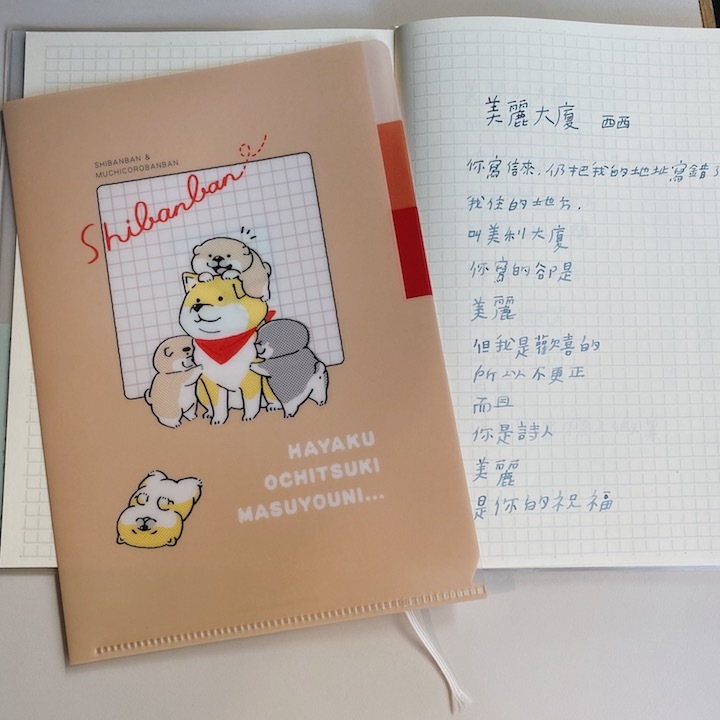 SHIBANBAN &
MUCHICOROBANBAN
Shibanban
HAYAKU
OCHITSUKI
MASUYOUNI...
美麗大廈 西西
你寫信來,仍把我的地址寫錯了
我住的地方,
叫美利大廈
你寫的卻是
美麗
但我是歡喜的
所以不更正
而且
你是詩人
美麗
是你的祝福